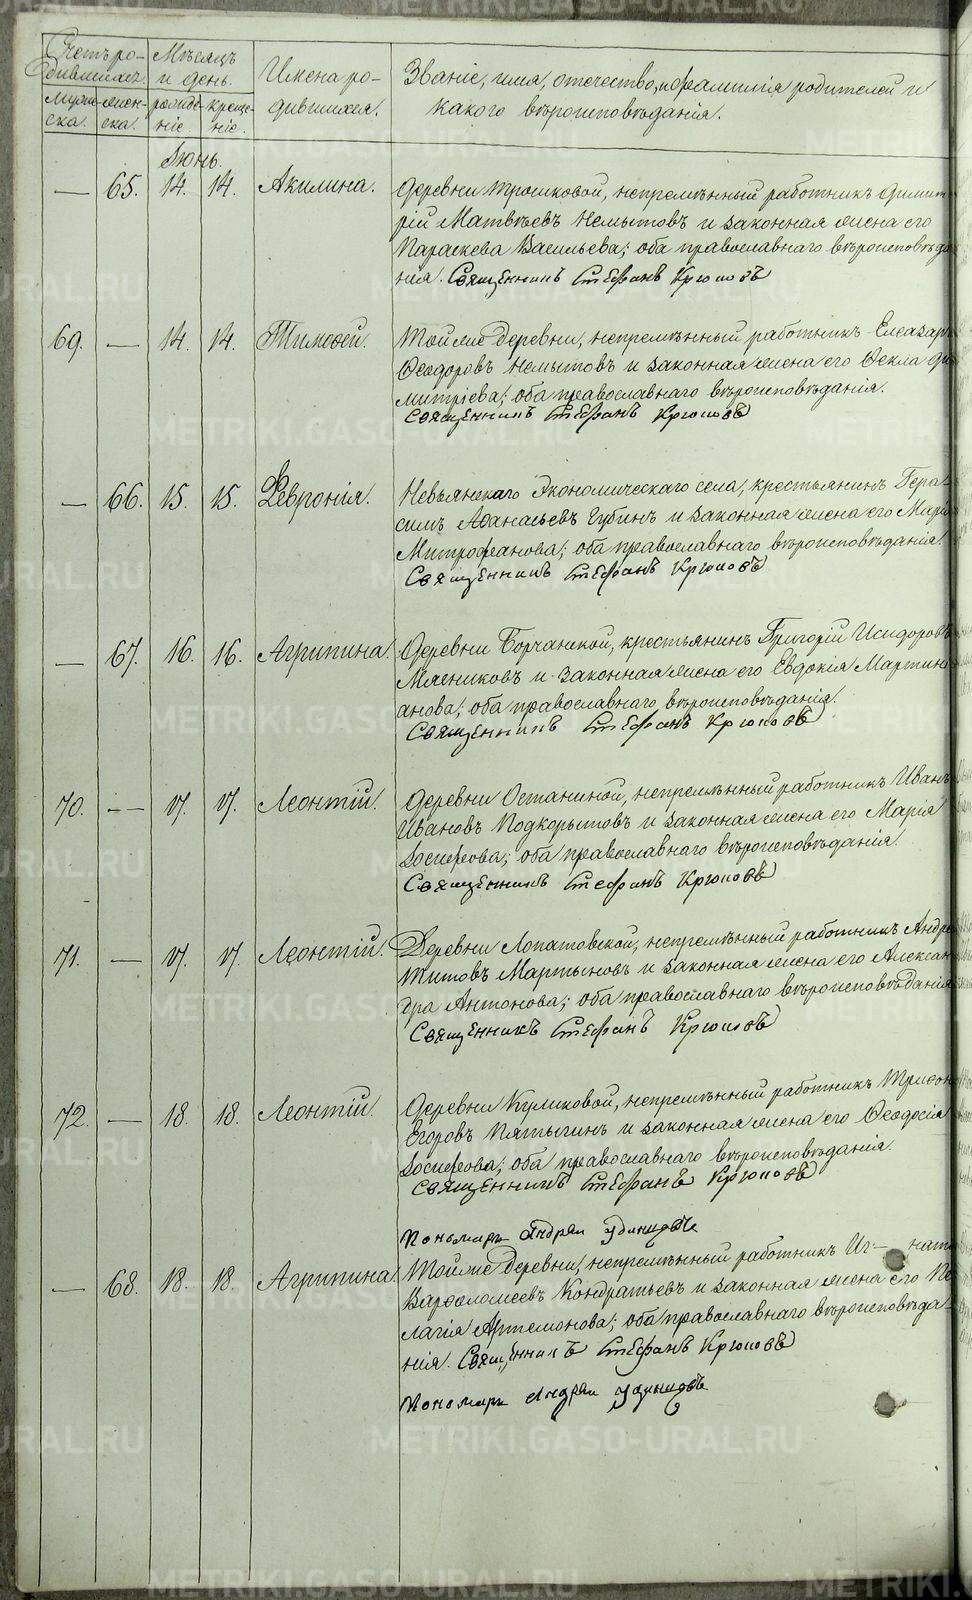 Счетъ ро-
дившихся.
Муже-
ска.
женс-
ска.
Мѣсяцъ
и день.
рожде-
ніе
креще-
ніе.
Имена ро-
дившихся.
Званіе, имя, отечество, и фамилія родителей и
какого вѣроисповѣданія.
Іюнь.
— 65. 14. 14. Акилина. Деревни Трошковой, непремѣнный работникъ Димит-
рій Матвѣевъ Немытовъ и законная жена его
Параскева Васильева; оба православнаго вѣроисповѣда
нія. Священникъ Стефанъ Крюковъ
69. — 14. 14. Тимофей. Той же деревни, непремѣнный работникъ Елеазаръ
Ѳеодоровъ Немытовъ и законная жена его Ѳекла Ди
митріева; оба православнаго вѣроисповѣданія.
Священникъ Стефанъ Крюковъ
— 66. 15. 15. Февронія. Невьянскаго Экономическаго села, крестьянинъ Гера
симъ Аѳанасьевъ Губинъ и законная жена его Марія
Митрофанова; оба православнаго вѣроисповѣданія.
Священникъ Стефанъ Крюковъ
— 67. 16. 16. Агрипина. Деревни Борчаниной, крестьянинъ Григорій Исидоровъ
Мясниковъ и законная жена его Евдокія Мартини
анова; оба православнаго вѣроисповѣданія.
Священникъ Стефанъ Крюковъ
70. — 17. 17. Леонтій. Деревни Останиной, непремѣнный работникъ Иванъ
Ивановъ Подкорытовъ и законная жена его Марія
Досифеова; оба православнаго вѣроисповѣданія.
Священникъ Стефанъ Крюковъ
71. — 17. 17. Леонтій. Деревни Лопатовской, непремѣнный работникъ Андре
Титовъ Мартыновъ и законная жена его Алексан
дра Антонова; оба православнаго вѣроисповѣданія
Священникъ Стефанъ Крюковъ
72. — 18. 18. Леонтій. Деревни Куликовой, непремѣнный работникъ Трифон
Егоровъ Пятыгинъ и законная жена его Ѳеодосія
Досифеова; оба православнаго вѣроисповѣданія.
Священникъ Стефанъ Крюковъ
Пономарь Андрей
— 68. 18. 18. Агрипина Той же деревни, непремѣнный работникъ Иг— нати
Варѳоломеевъ Кондратьевъ и законная жена его Пе
лагія Артемонова; оба православнаго вѣроисповѣда-
нія. Священникъ Стефанъ Крюковъ
Пономарь Андрей
METRIKI.GASO-URAL.RU